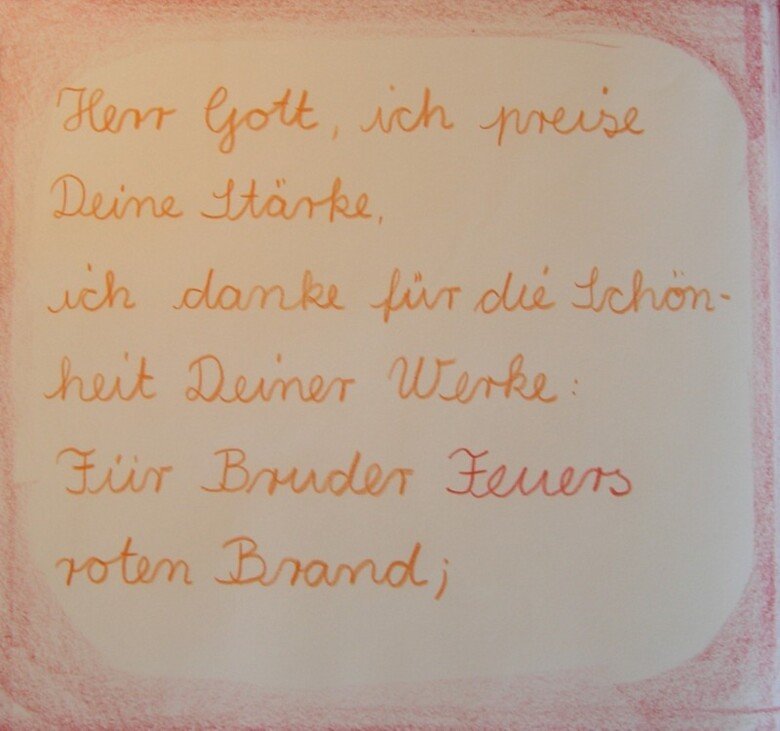 Herr Gott, ich preise
Deine Stärke,
ich danke für die Schön-
heit Deiner Werke:
Für Bruder Feuers
roten Brand;